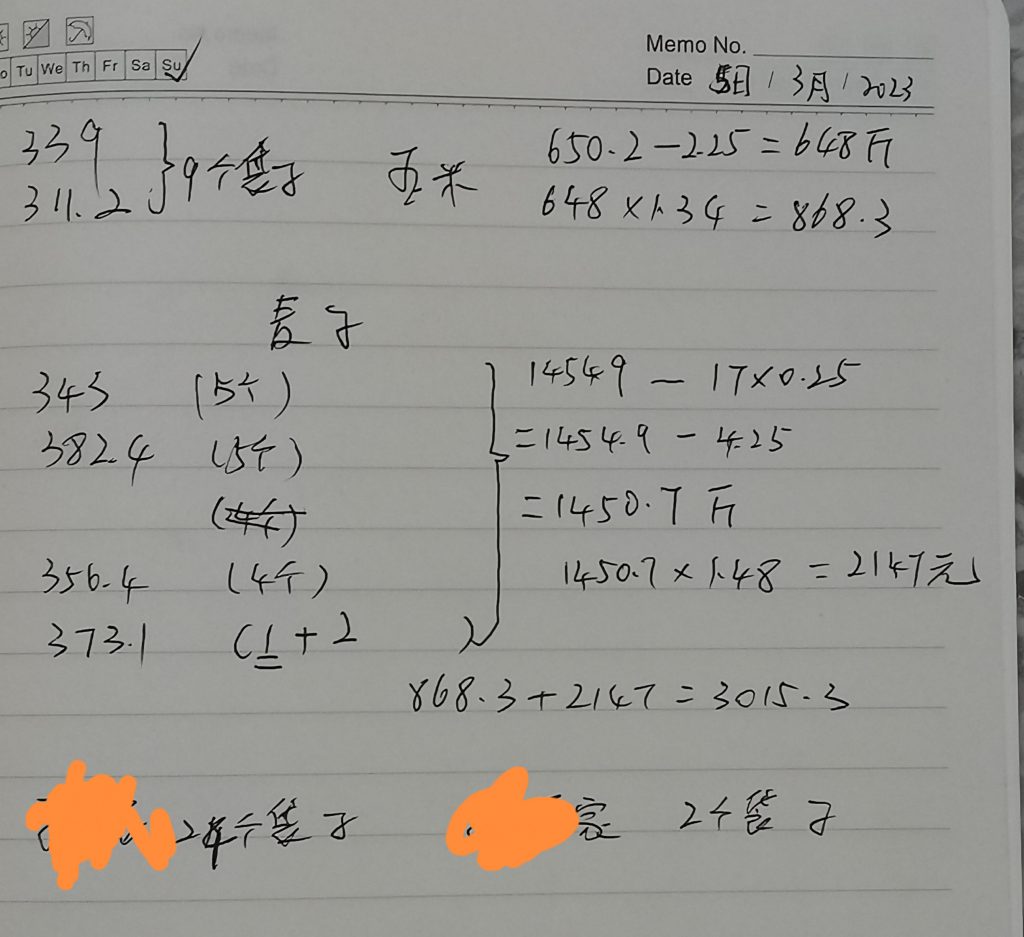 Memo No.
o Tu We Th Fr Sa Su
Date 5日 / 3月 / 2023
339
311.2
9个袋子
玉米
650.2-2.25=648斤
648×1.34=868.3
麦子
343 (5个)
382.4 (5个)
356.4 (4个)
373.1 (1+2)
1454.9 - 17×0.25
=1454.9 - 4.25
=1450.7斤
1450.7×1.48=2147元
868.3+2147=3015.3
个袋子
家 2个袋子